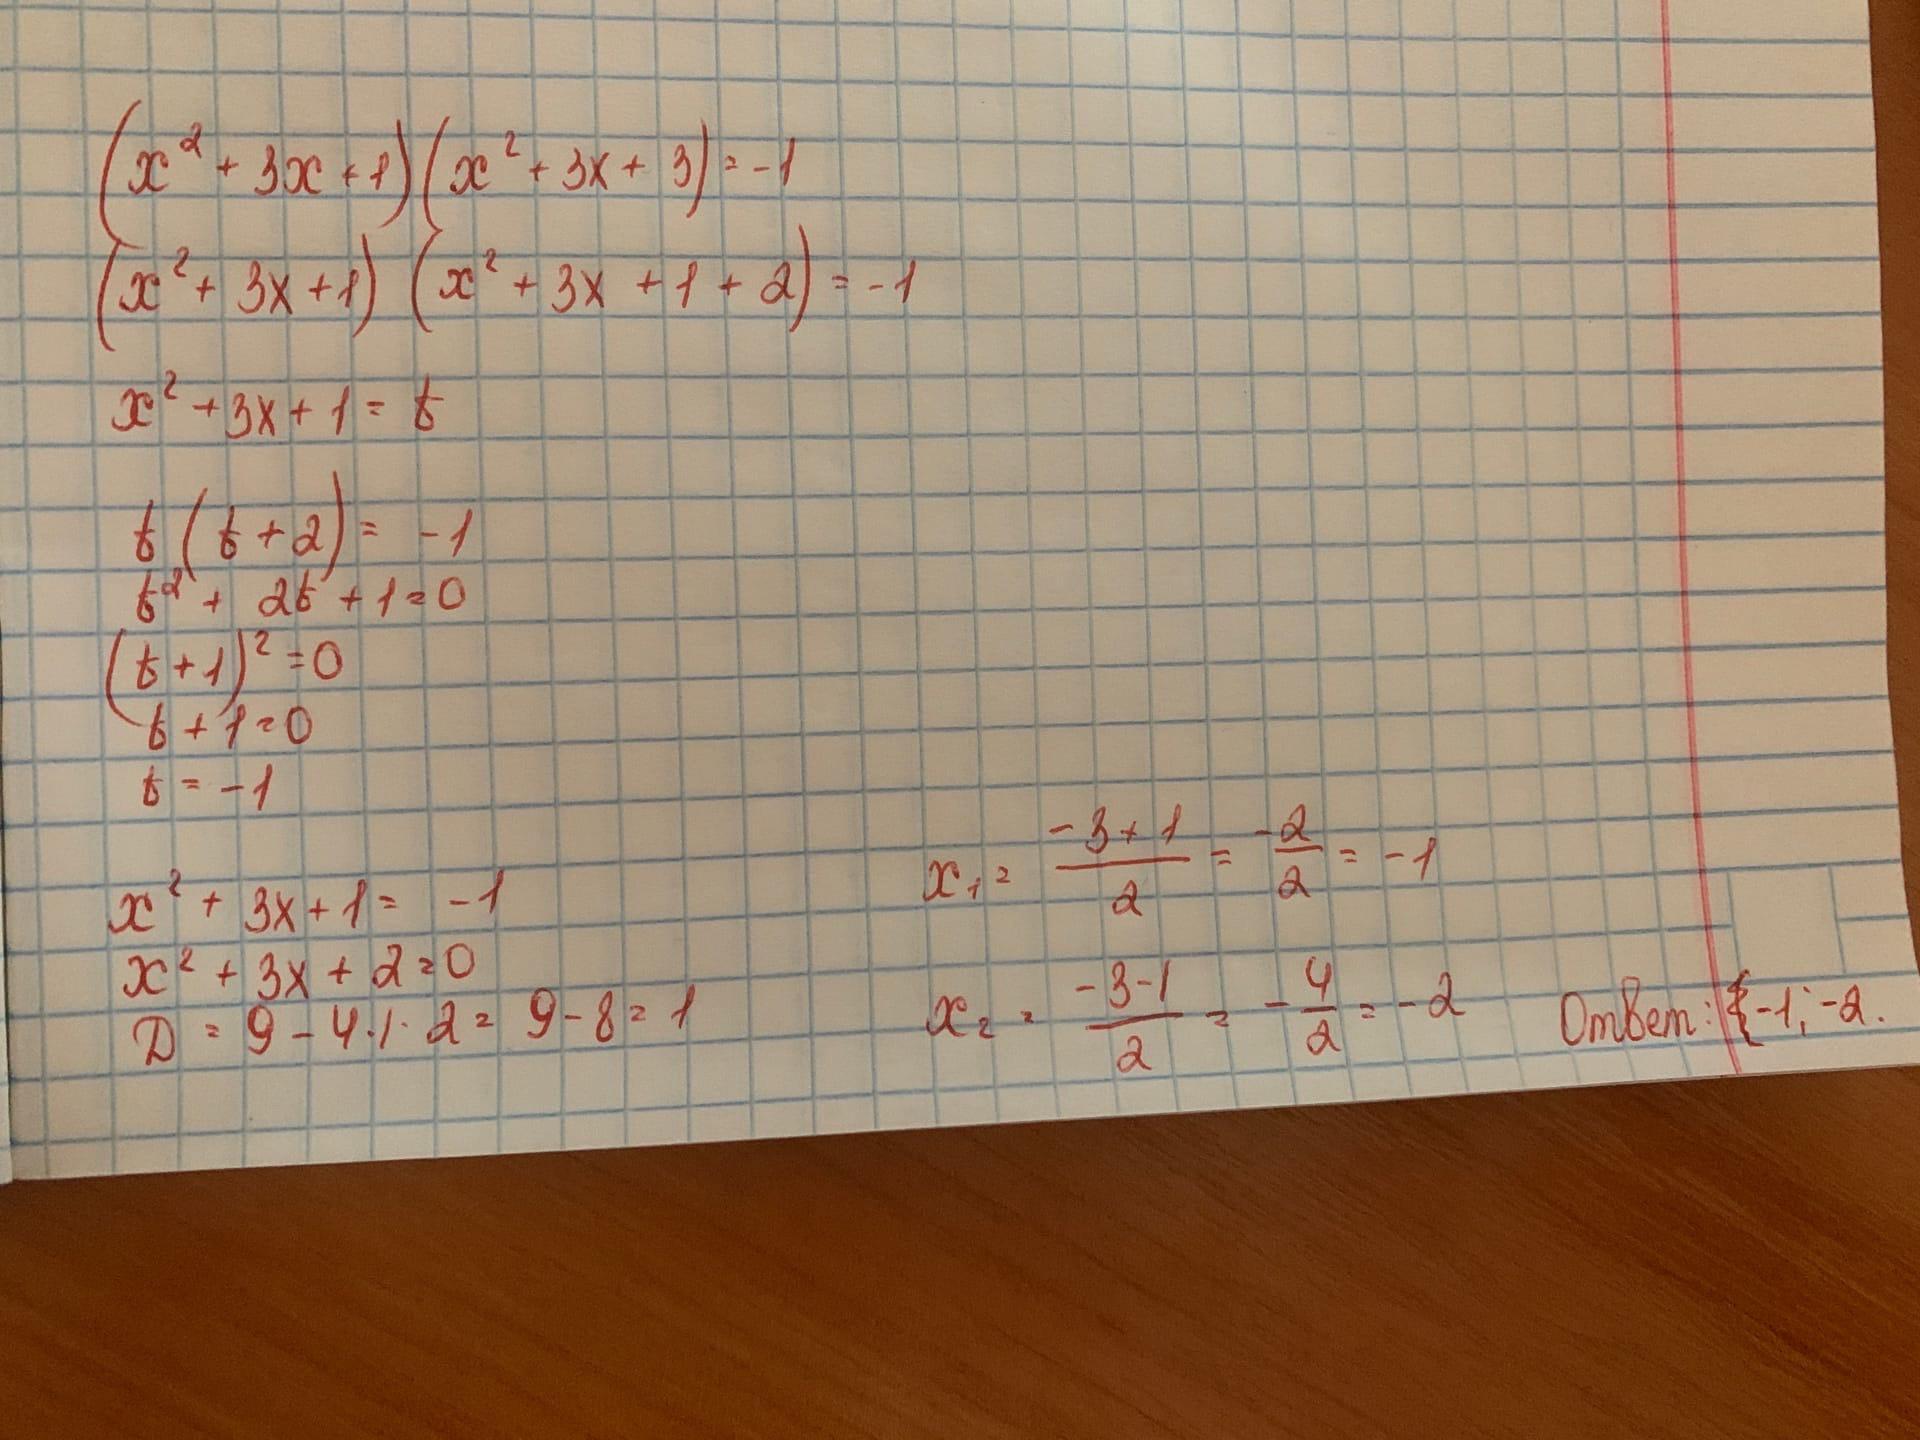 (x² + 3x + 1)(x² + 3x + 3) = -1
(x² + 3x + 1) (x² + 3x + 1 + 2) = -1
x² + 3x + 1 = t
t (t + 2) = -1
t² + 2t + 1 = 0
(t + 1)² = 0
t + 1 = 0
t = -1
x² + 3x + 1 = -1
x² + 3x + 2 = 0
D = 9 - 4·1·2 = 9 - 8 = 1
x₁ = (-3 + 1)/2 = -2/2 = -1
x₂ = (-3 - 1)/2 = -4/2 = -2
Ответ: {-1; -2.